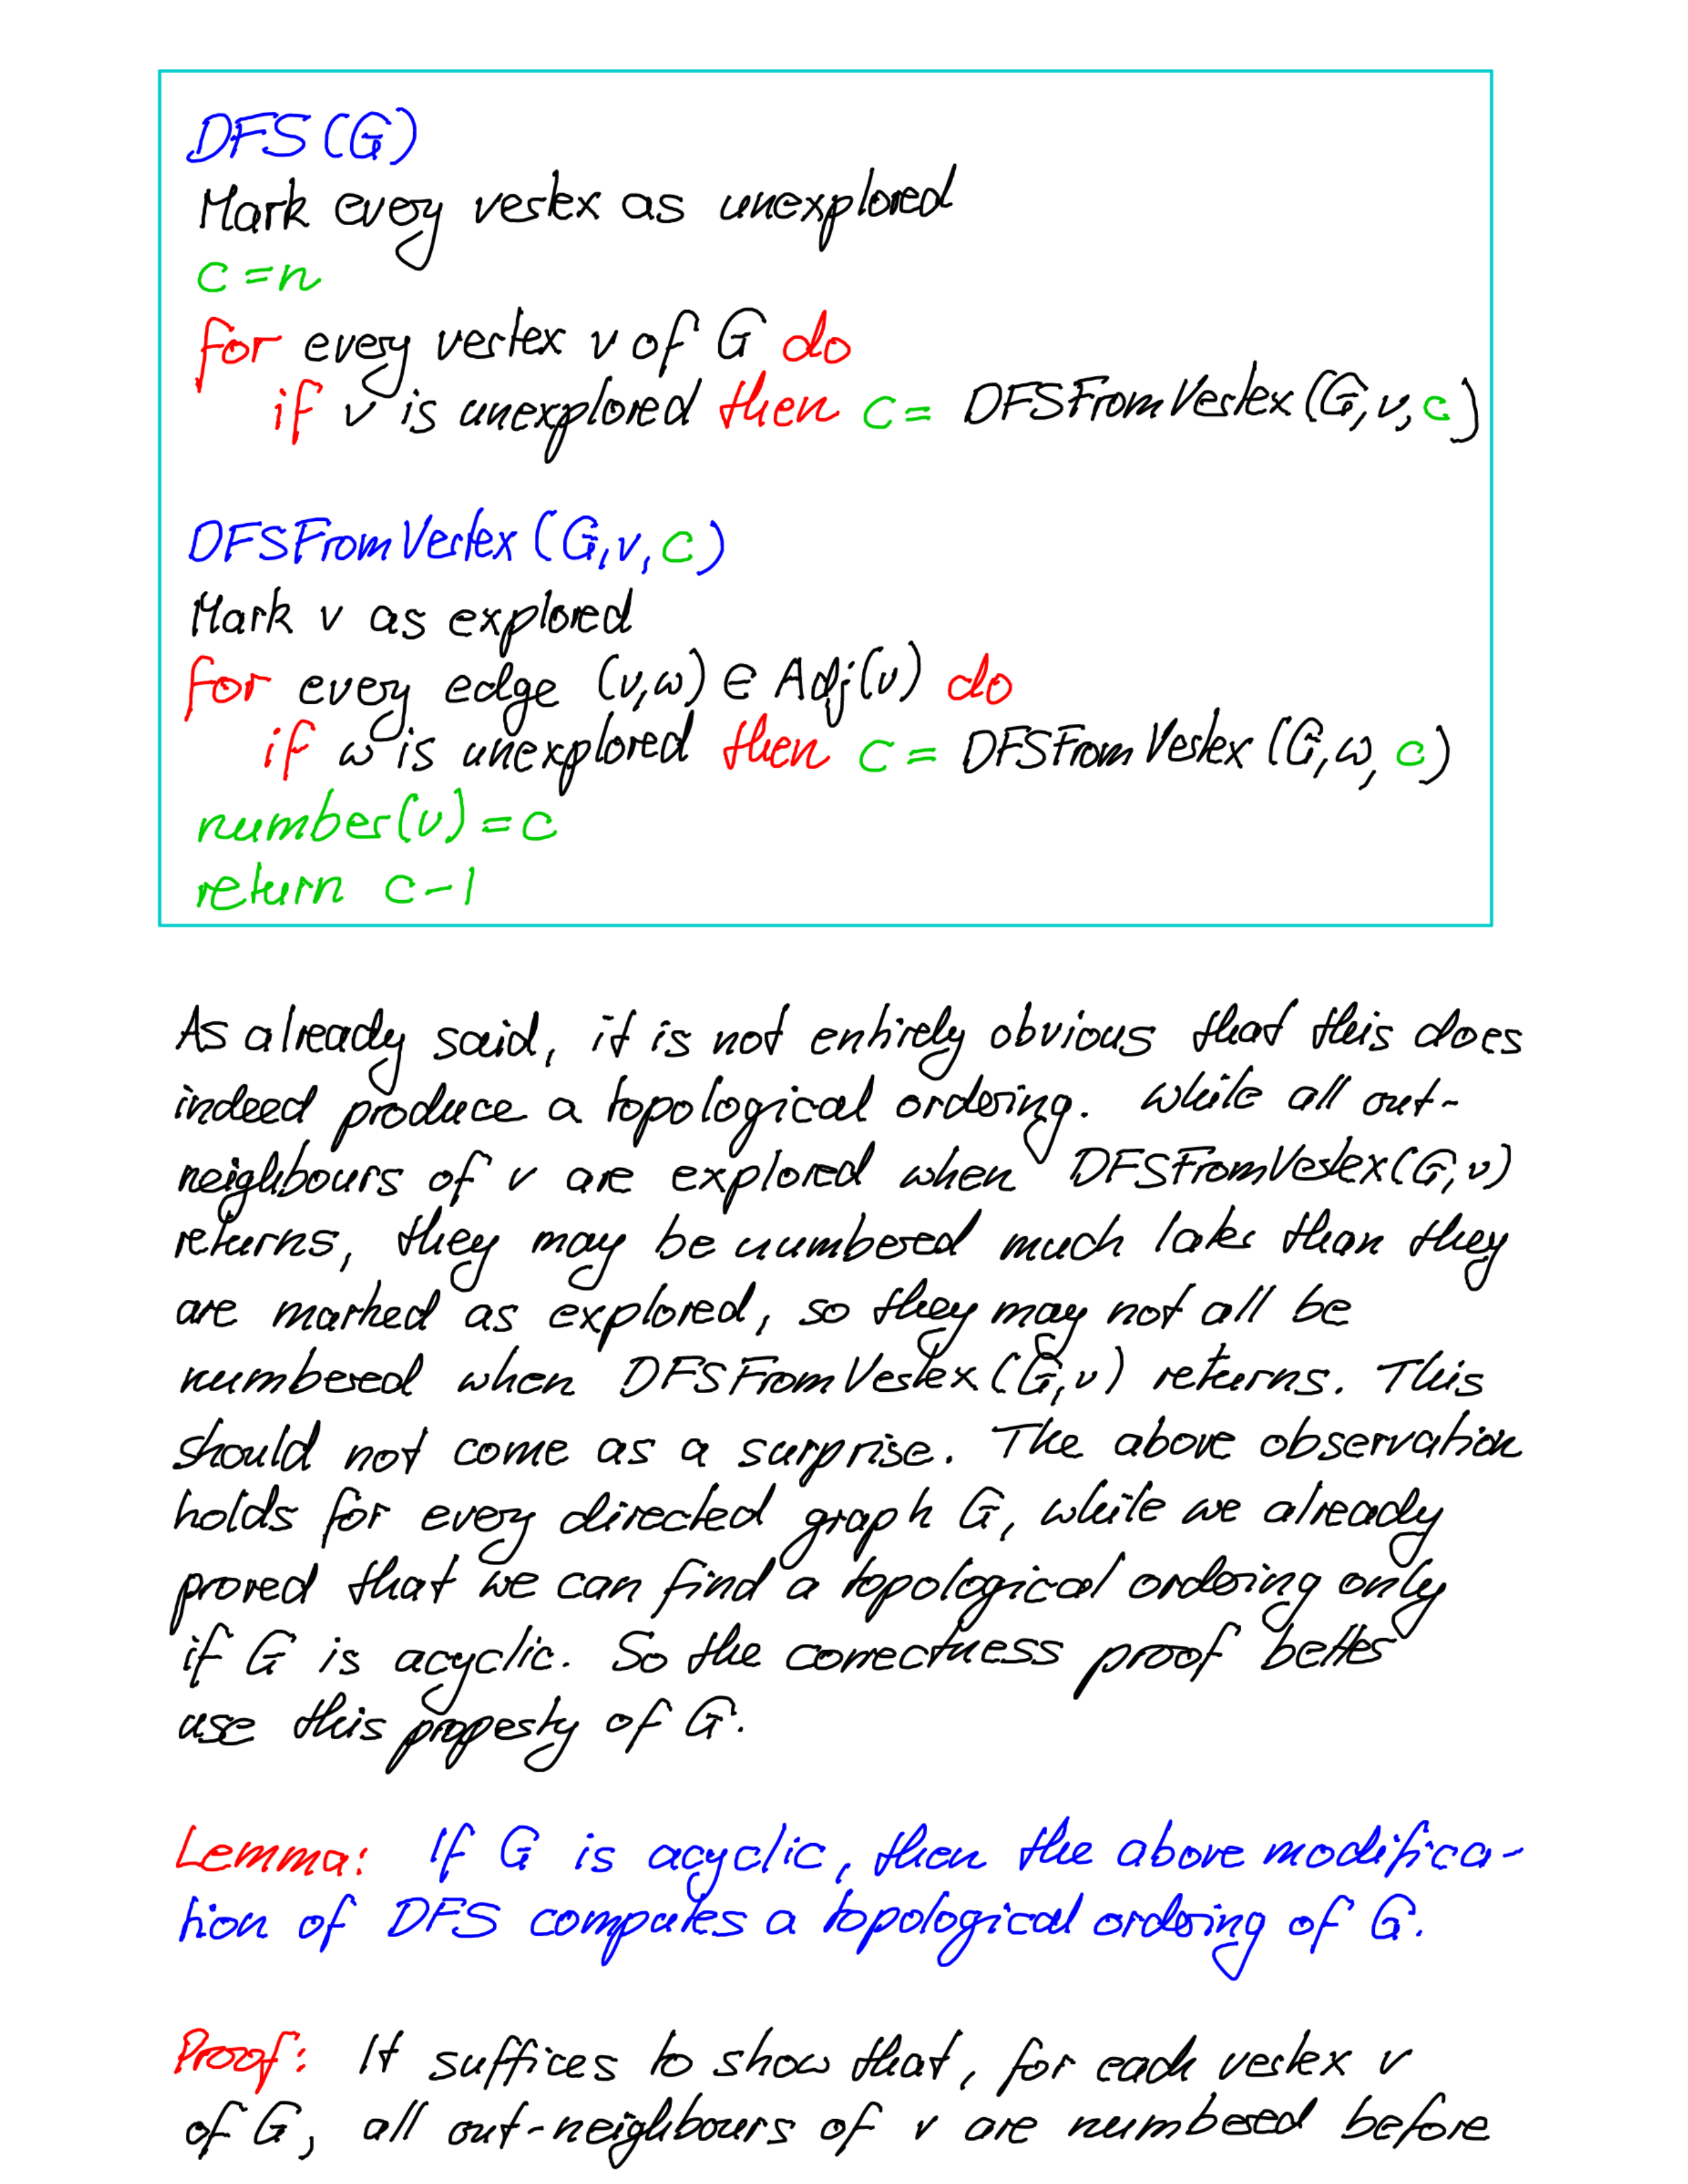 DFS(G)
Mark every vertex as unexplored
c=n
for every vertex v of G do
if v is unexplored then c = DFSFromVertex(G,v,c)
DFSFromVertex(G,v,c)
Mark v as explored
for every edge (v,w) ∈ Adj(v) do
if w is unexplored then c = DFSFromVertex(G,w,c)
number(v)=c
return c-1
As already said, it is not entirely obvious that this does
indeed produce a topological ordering. While all out-
neighbours of v are explored when DFSFromVertex(G,v)
returns, they may be numbered much later than they
are marked as explored, so they may not all be
numbered when DFSFromVertex(G,v) returns. This
should not come as a surprise. The above observation
holds for every directed graph G, while we already
proved that we can find a topological ordering only
if G is acyclic. So the correctness proof better
use this property of G.
Lemma: If G is acyclic, then the above modifica-
tion of DFS computes a topological ordering of G.
Proof: It suffices to show that, for each vertex v
of G, all out-neighbours of v are numbered before